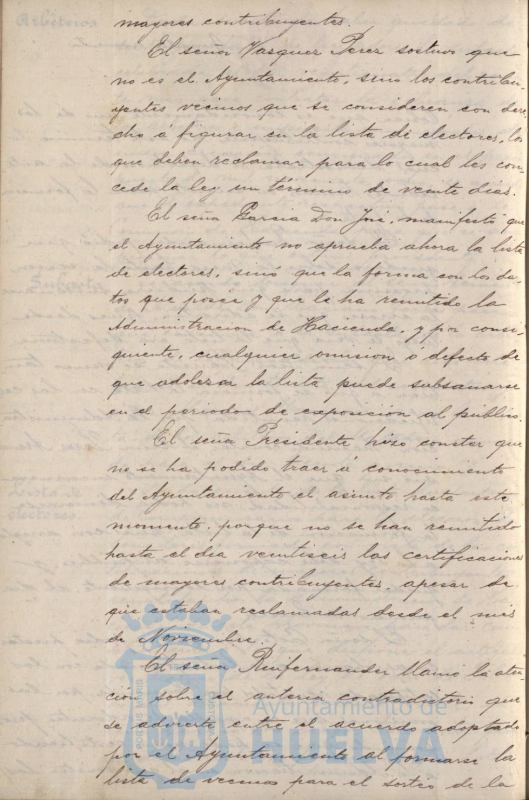 mayores contribuyentes.
El señor Vasquez Perez sostuvo que
no es el Ayuntamiento, sino los contribu-
yentes vecinos que se consideren con dere-
cho á figurar en la lista de electores, los
que deben reclamar para lo cual les con-
cede la ley un término de veinte dias.
El señor Garcia Don José, manifestó que
el Ayuntamiento no aprueba ahora la lista
de electores, sinó que la forma con los da-
tos que posee y que le ha remitido la
Administracion de Hacienda, y por consi-
guiente, cualquier omision ó defecto de
que adolezca la lista puede subsanarse
en el periodo de exposición al público.
El señor Presidente hizo constar que
no se ha podido traer á conocimiento
del Ayuntamiento el asunto hasta este
momento, porque no se han remitido
hasta el dia veintiseis las certificaciones
de mayores contribuyentes, apesar de
que estaban reclamadas desde el mes
de Noviembre.
El señor Ruifernandez llamó la aten-
cion sobre el anterior contradictorio que
se advierte entre el acuerdo adoptado
por el Ayuntamiento al formarse la
lista de vecinos para el sorteo de la
Ayuntamiento de
HUELVA